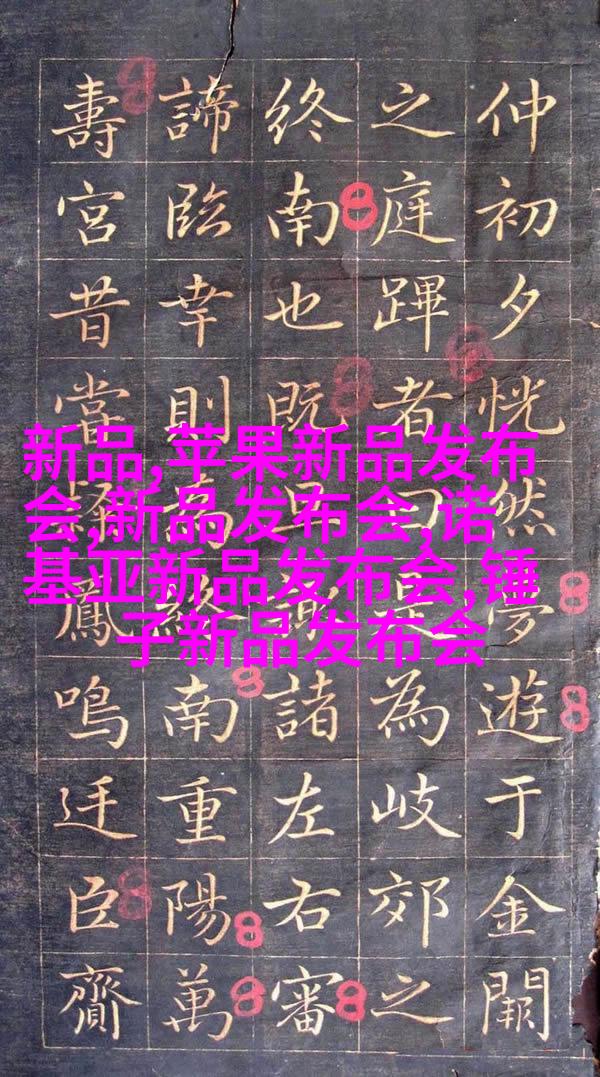 新品,苹果新品发布
会,新品发布会,诺
基亚新品发布会,锤
子新品发布会
仲初夕恍然夢遊于金闕
之庭蹕者曰是為岐郊之
終南也既諸左右審
諦臨幸則終南重陽萬
壽宮昔當鳳鳴迁臣齎